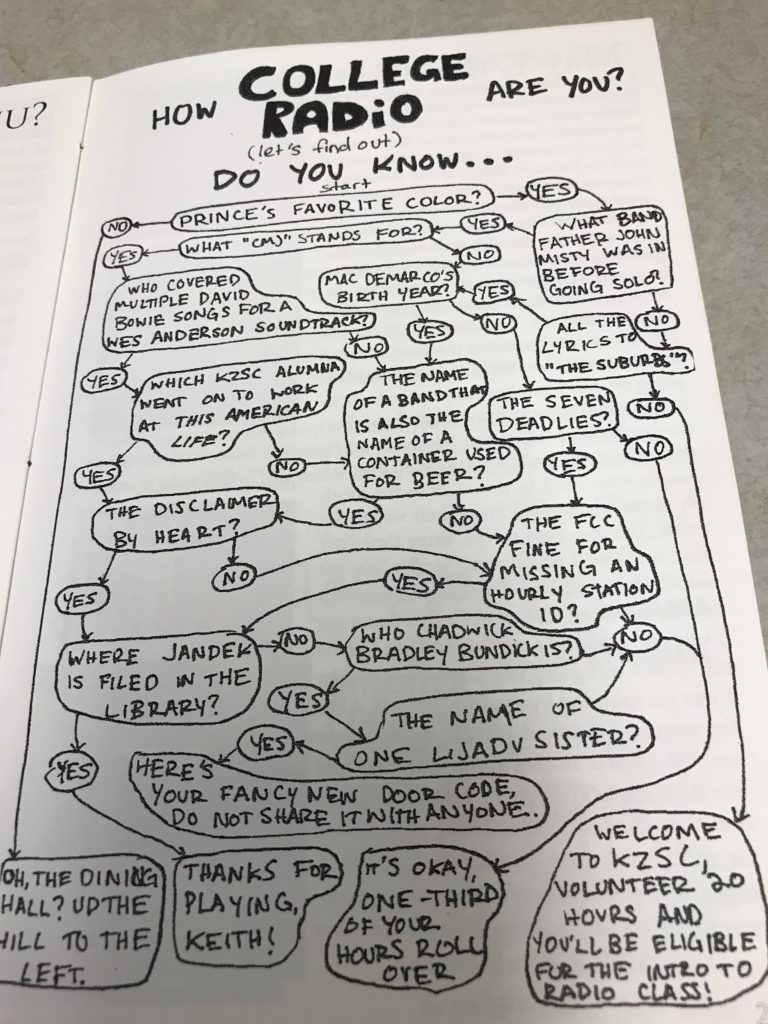 U?
HOW COLLEGE RADIO ARE YOU?
(let's find out)
DO YOU KNOW...
start
PRINCE'S FAVORITE COLOR?
YES
NO
WHAT "CMJ" STANDS FOR?
YES
YES
NO
WHAT BAND
FATHER JOHN
MISTY WAS IN
BEFORE
GOING SOLO?
WHO COVERED
MULTIPLE DAVID
BOWIE SONGS FOR A
WES ANDERSON SOUNDTRACK?
MAC DEMARCO'S
BIRTH YEAR?
YES
NO
YES
NO
ALL THE
LYRICS TO
"THE SUBURBS"?
NO
NO
YES
WHICH KZSC ALUMNA
WENT ON TO WORK
AT THIS AMERICAN
LIFE?
THE NAME
OF A BAND THAT
IS ALSO THE
NAME OF A
CONTAINER USED
FOR BEER?
THE SEVEN
DEADLIES?
NO
YES
NO
YES
THE DISCLAIMER
BY HEART?
YES
NO
THE FCC
FINE FOR
MISSING AN
HOURLY STATION
ID?
NO
YES
YES
WHERE JANDEK
IS FILED IN THE
LIBRARY?
NO
WHO CHADWICK
BRADLEY BUNDICK IS?
NO
YES
THE NAME OF
ONE LIJADU SISTER?
YES
YES
HERE'S
YOUR FANCY NEW DOOR CODE,
DO NOT SHARE IT WITH ANYONE.
OH, THE DINING
HALL? UP THE
HILL TO THE
LEFT.
THANKS FOR
PLAYING,
KEITH!
IT'S OKAY,
ONE-THIRD
OF YOUR
HOURS ROLL
OVER
WELCOME
TO KZSC,
VOLUNTEER 20
HOURS AND
YOU'LL BE ELIGIBLE
FOR THE INTRO TO
RADIO CLASS!
2